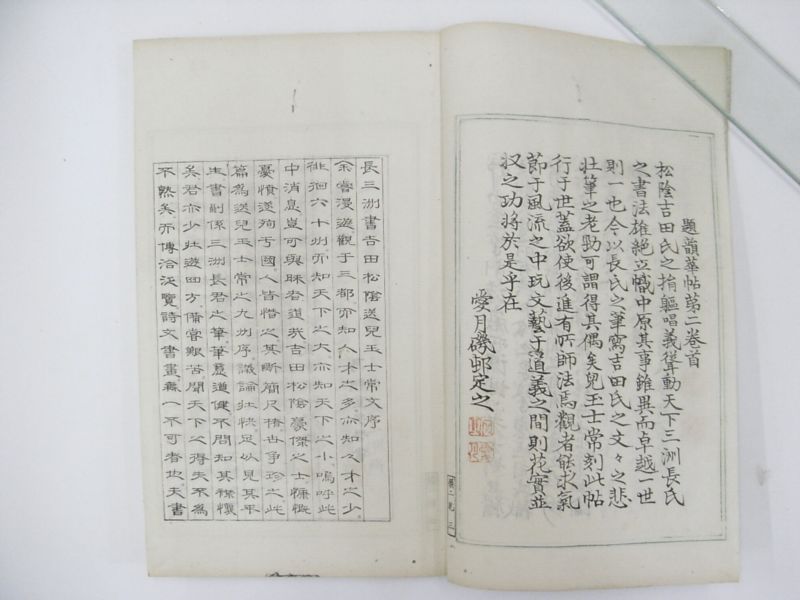 題韻華帖第二卷首
松陰吉田氏之捐軀唱義聳動天下三洲長氏
之書法雄絕立幟中原其事雖異而卓越一世
則一也今以長氏之筆寫吉田氏之文々之悲
壯筆之老勁可謂得其偶矣兒玉士常刻此帖
行于世蓋欲使後進有所師法焉觀者能求氣
節于風流之中玩文藝于道義之間則花實並
収之功將於是乎在
愛月磯邨定之
長三洲書吉田松陰送兒玉士常文序
余嘗漫遊觀于三都亦知人才之多亦知人才之少
徘徊六十州亦知天下之大亦知天下之小嗚呼此
中消息豈可與昧者道哉吉田松陰豪傑之士慷慨
憂憤遂殉于國人皆惜之其斷簡尺楮世爭珍之此
篇為送兒玉士常之九州序議論壯快足以見其平
生書則係三洲長君之筆筆意遒健不問知其襟懷
矣君亦少壯遊四方備嘗艱苦聞天下之得失不為
不熟矣而傳洽泛覽詩文書畫無一不可者也夫書